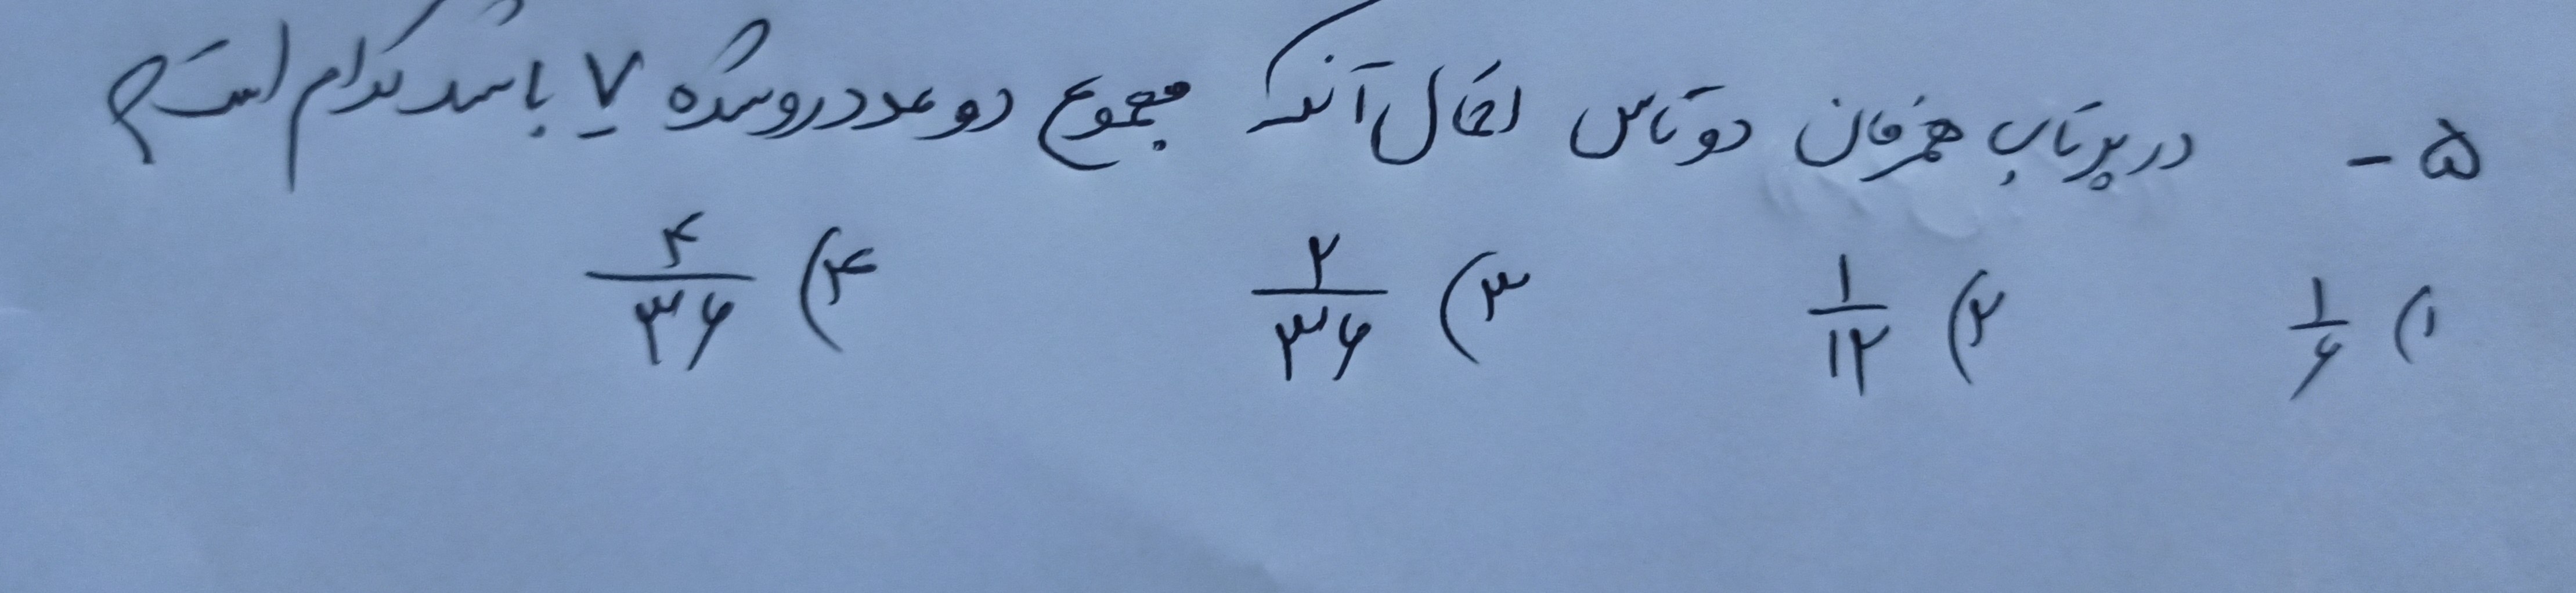 ۵ - در پرتاب همزمان دو تاس احتمال آنکه مجموع دو عدد رو شده ۷ باشد کدام است؟
۱) ۱/۶ ۲) ۱/۱۲ ۳) ۲/۳۶ ۴) ۴/۳۶